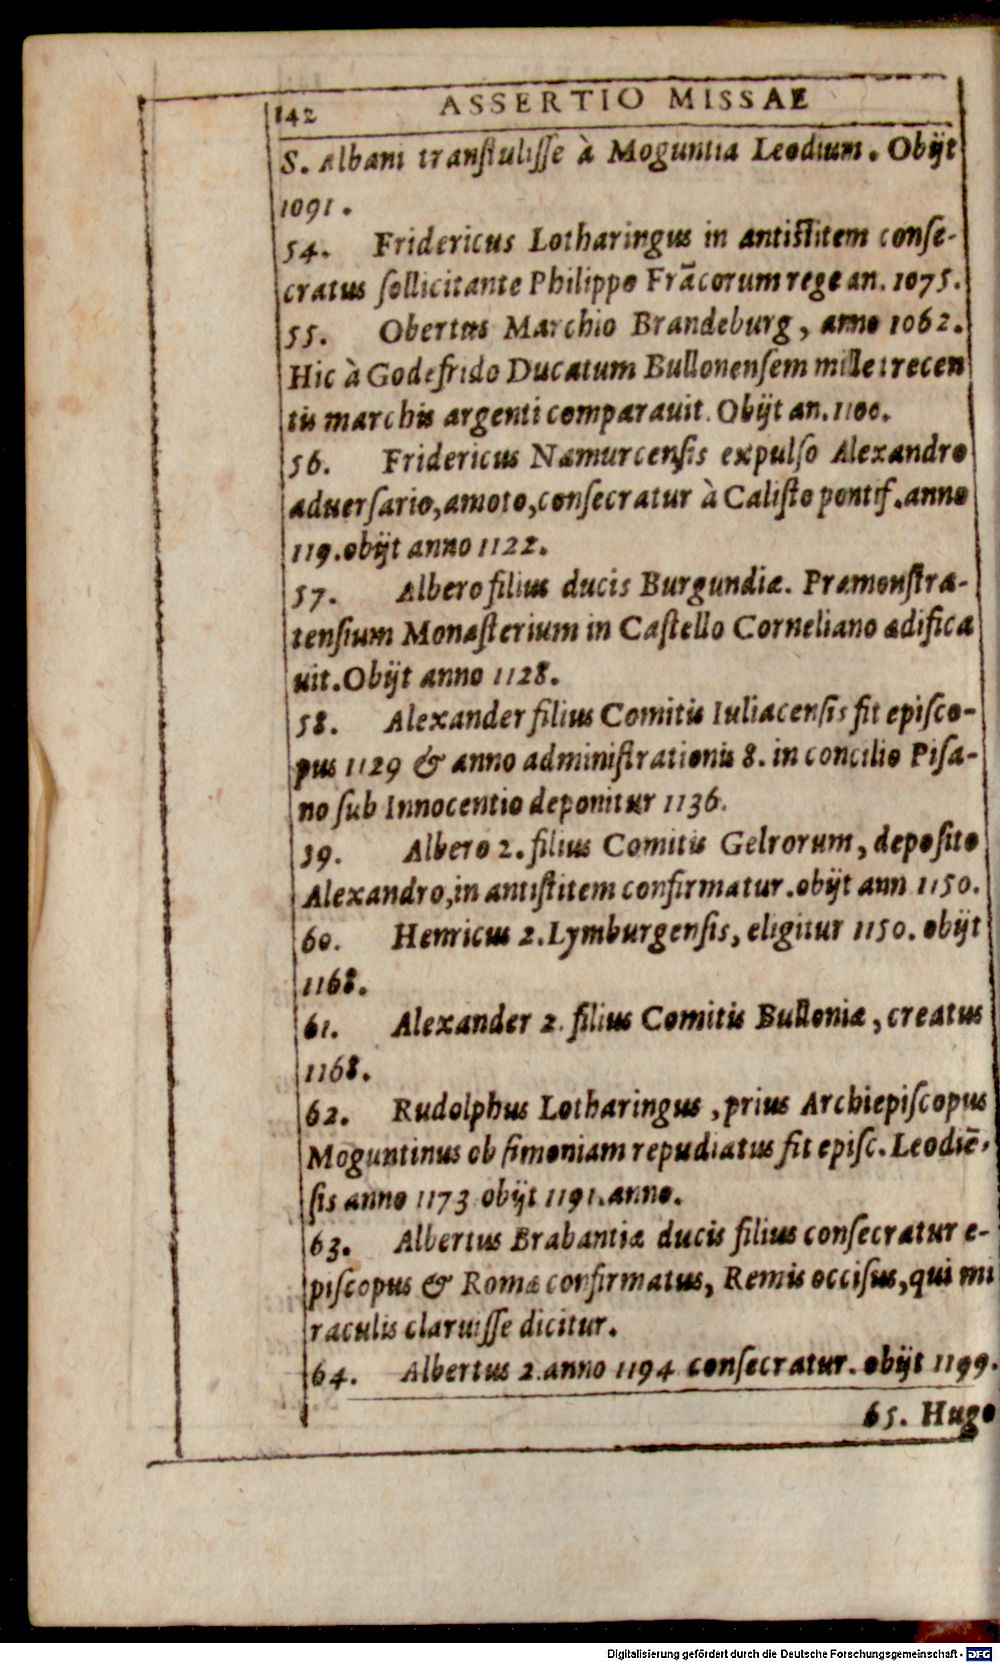 142 ASSERTIO MISSAE
S. Albani tranſtuliſſe à Moguntia Leodium. Obijt
1091.
54. Fridericus Lotharingus in antiſtitem conſe-
cratus ſollicitante Philippo Frācorum rege an. 1075.
55. Obertus Marchio Brandeburg, anno 1062.
Hic à Godefrido Ducatum Bullonenſem mille trecen
tis marchis argenti comparauit. Obijt an. 1100.
56. Fridericus Namurcenſis expulſo Alexandro
aduerſario, amoto, conſecratur à Caliſto pontif. anno
119. obijt anno 1122.
57. Albero filius ducis Burgundiæ. Præmonſtra-
tenſium Monaſterium in Caſtello Corneliano ædifica
uit. Obijt anno 1128.
58. Alexander filius Comitis Iuliacenſis fit epiſco-
pus 1129 & anno adminiſtrationis 8. in concilio Piſa-
no ſub Innocentio deponitur 1136.
59. Albero 2. filius Comitis Gelrorum, depoſito
Alexandro, in antiſtitem confirmatur. obijt ann 1150.
60. Henricus 2. Lymburgenſis, eligitur 1150. obijt
1168.
61. Alexander 2. filius Comitis Bulloniæ, creatus
1168.
62. Rudolphus Lotharingus, prius Archiepiſcopus
Moguntinus ob ſimoniam repudiatus fit epiſc. Leodiē-
ſis anno 1173 obijt 1191. anno.
63. Albertus Brabantiæ ducis filius conſecratur e-
piſcopus & Romæ confirmatus, Remis occiſus, qui mi
raculis claruiſſe dicitur.
64. Albertus 2. anno 1194 conſecratur. obijt 1199.
65. Hugo
Digitalisierung gefördert durch die Deutsche Forschungsgemeinschaft - DFG